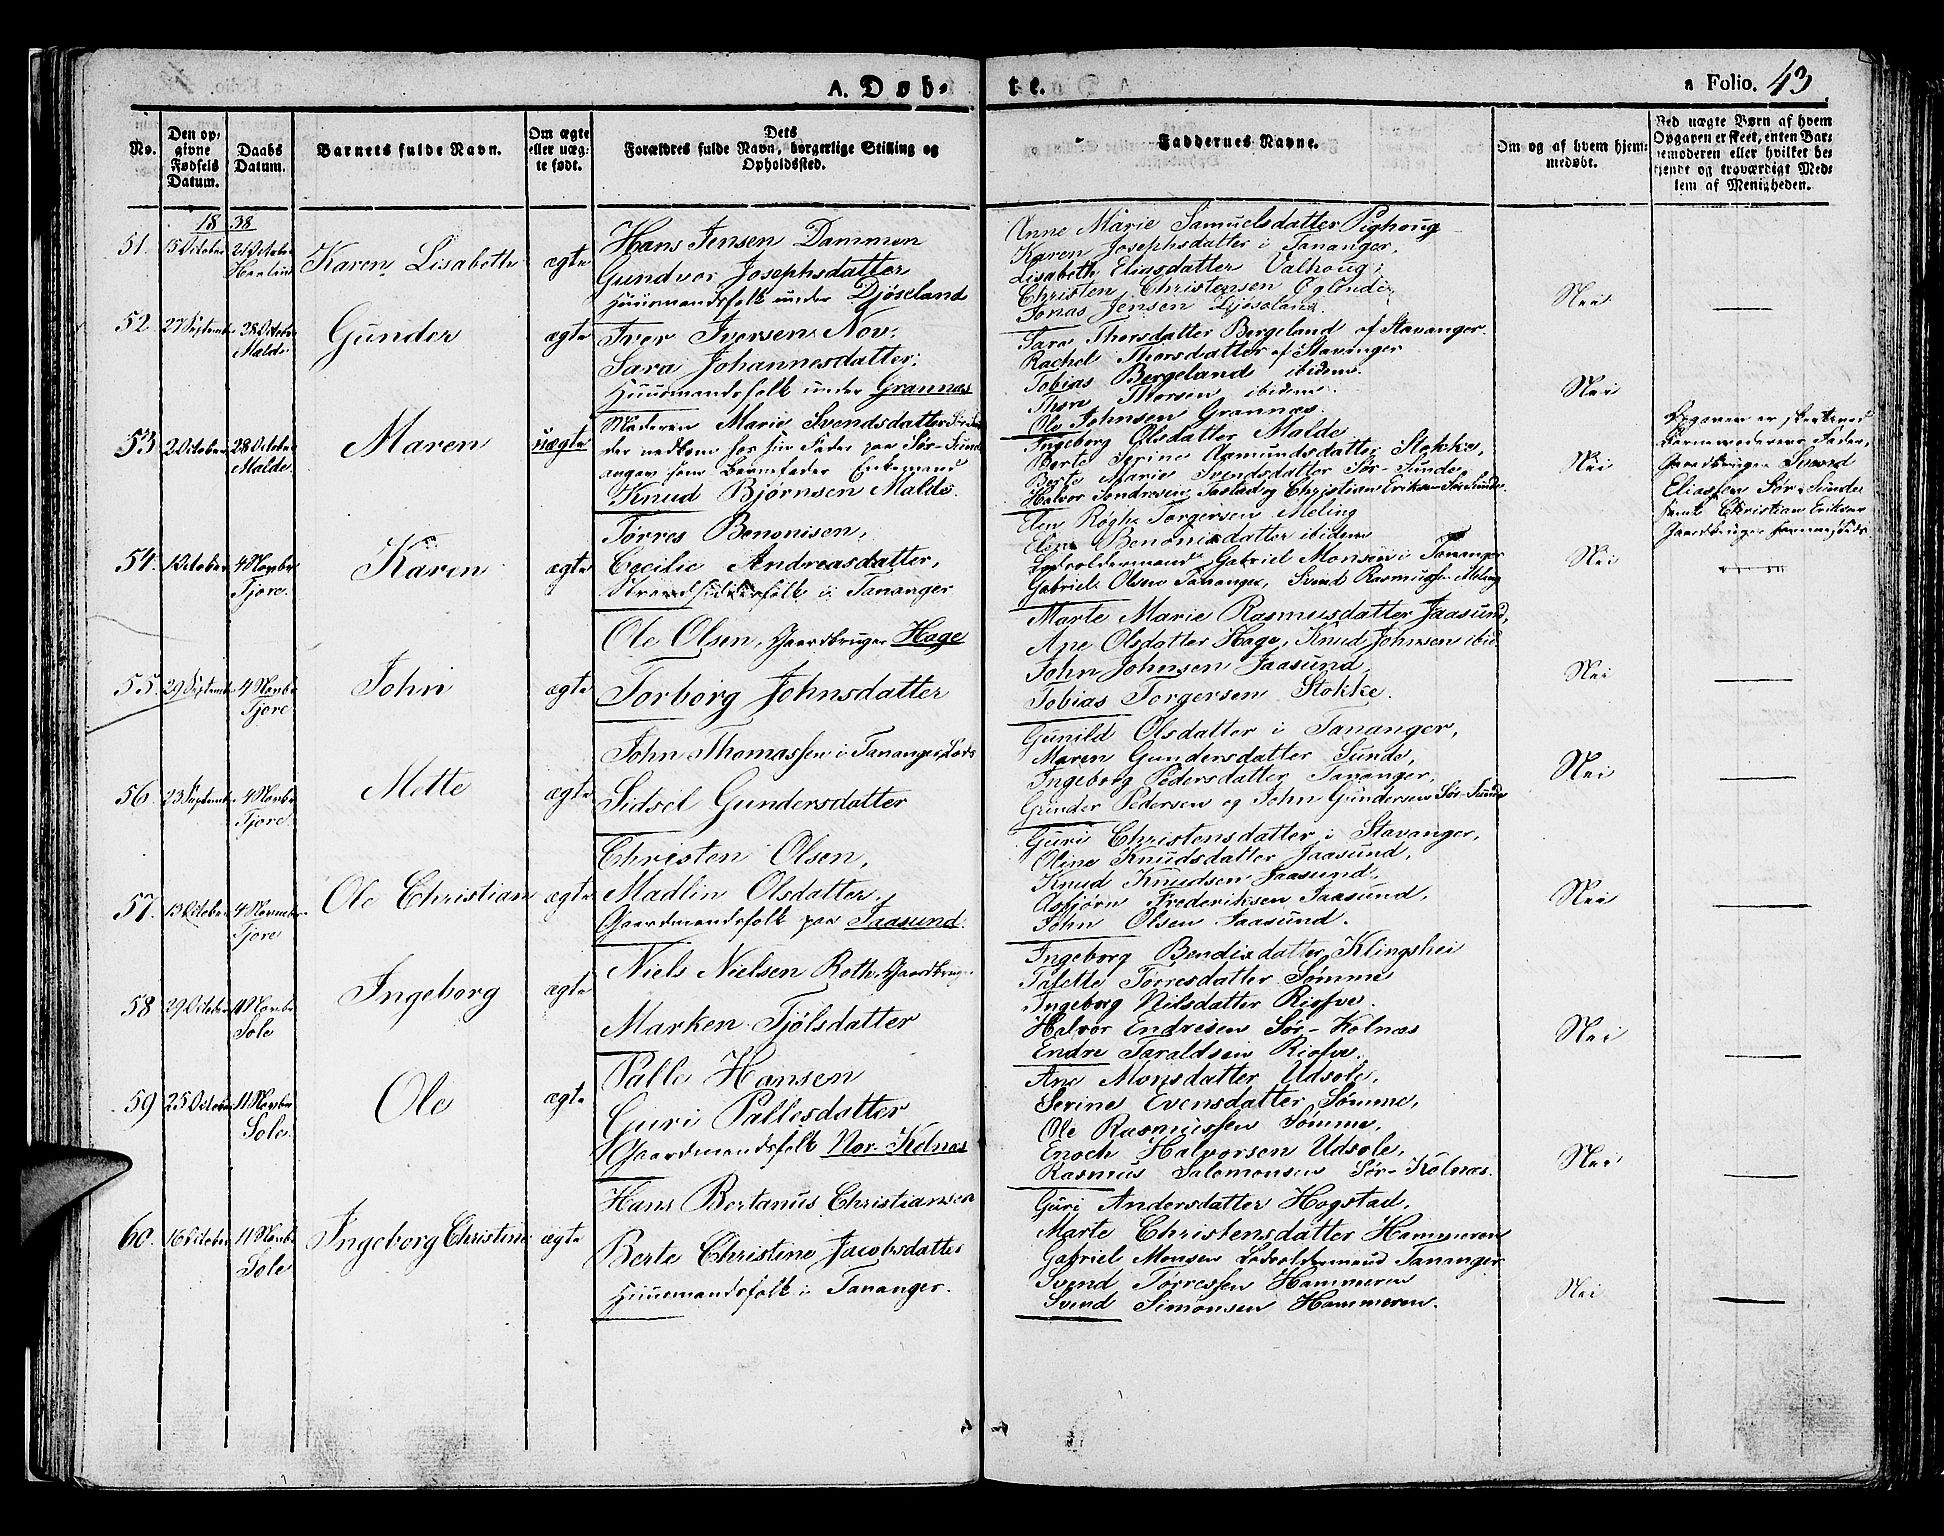 A. Døb-
te.
a Folio. 43
No.
Den op-
givne
Fødsels
Datum.
Daabs
Datum.
Barnets fulde Navn.
Om ægte
eller uæg-
te født.
Dets
Forældres fulde Navn, borgerlige Stilling og
Opholdssted.
Faddernes Navne.
Om og af hvem hjem-
medøbt.
Ved uægte Børn af hvem
Opgaven er skeet, enten Bar-
nemoderen eller hvilket be-
kjendt og troværdigt Med-
lem af Menigheden.
18 38
51. 15 October 21 October
Karen Lisabeth ægte
Hans Jensen Dammen
Gundvor Josephsdatter
Huusmandsfolk under Djöseland
Anne Marie Samuelsdatter
Karen Josephsdatter i Tananger,
Lisabeth Eliasdatter Valhoug;
Christen Christensen
Jonas Jensen Djöseland
Nei
52. 27 Septemb. 28 October
Malde.
Gunder ægte
Iver Iversen Nov.
Sara Johannesdatter;
Huusmandsfolk under Grannæs
Sara Thorsdatter Bergeland af Stavanger.
Rachel Thorsdatter af Stavanger
Tobias Bergeland ibidem.
Thor Thorsen ibidem.
Ole Johnsen Grannæs.
Nei
53. 2 October 28 October
Malde.
Maren uægte
Moderen Marie Svendsdatter
der nedkom hos sin Fader paa Sør-Sunde
angav som Barnefader Enkemand
Knud Bjørnsen Malde.
Ingeborg Olsdatter Malde
Berte Serine Aamundsdatter Stokke,
Berte Marie Svendsdatter Sør-Sunde,
Halvor Sondresen Tastad og Christian Eriksen Sør Sunde.
Nei
Opgaven er skeet ved
Barnemoderens Fader,
Gaardbruger Svend
Eliassen Sør-Sunde
samt Christian Eriksen
Gaardbruger sammesteds
54. 1 October 4 Novbr
Tjore.
Karen ægte
Tørres Bononisen,
Cecilie Andreasdatter,
Strandsidderfolk i Tananger
Elen Røgh. Torgersen Meling
Elene Bononisdatter ibidem
Lodsoldermand Gabriel Monsen i Tananger
Gabriel Olsen Tananger, Svend Rasmussen Meling
Nei
55. 29 Septemb. 4 Novbr
Tjore
John ægte
Ole Olsen, Gaardbruger Hage
Torborg Johnsdatter
Marte Marie Rasmusdatter Jaasund,
Ane Olsdatter Hage, Knud Johnsen ibid.
John Johnsen Jaasund
Tobias Torgersen Stokke.
Nei
56. 23 Septemb. 4 Novbr
Tjore
Mette ægte
John Thomassen i Tananger, Lods
Sidsel Gundersdatter
Gunild Olsdatter i Tananger,
Maren Gundersdatter Sunde,
Ingeborg Pedersdatter Tananger,
Gunder Pedersen og John Gundersen Sør-Sunde
Nei
57. 13 October 4 November
Tjore
Ole Christian ægte
Christen Olsen,
Madlin Olsdatter,
Gaardmandsfolk paa Jaasund.
Guri Christensdatter i Stavanger,
Oline Knudsdatter Jaasund,
Knud Knudsen Jaasund,
Asbjörn Frederiksen Jaasund,
John Olsen Jaasund.
Nei
58 29 October 11 Novbr
Sole
Ingeborg ægte
Niels Nielsen Roth, Gaardbruger
Marken Tjölsdatter
Ingeborg Bendixdatter Klingshei
Talette Tørresdatter Sømme
Ingeborg Nilsdatter Risfve.
Halvor Endresen Sør-Kolnæs
Endre Taraldsen Risfve.
Nei
59 25 October 11 Novbr
Sole.
Ole ægte
Palle Hansen
Guri Pallesdatter
Gaardmandsfolk Nor-Kolnæs
Ane Monsdatter Udsole,
Serine Evensdatter Sømme,
Ole Rasmussen Sømme,
Enoch Halvorsen Udsole,
Rasmus Salomonsen Sør-Kolnæs.
Nei
60. 16 October 11 Novbr
Sole
Ingeborg Christine ægte
Hans Bertanus Christiansen
Berte Christine Jacobsdatter
Huusmandsfolk i Tananger.
Guri Andersdatter Hogstad,
Marte Christensdatter Hammeren
Gabriel Monsen Lodsoldermand Tananger
Svend Tørressen Hammeren
Svend Simonsen Hammeren.
Nei